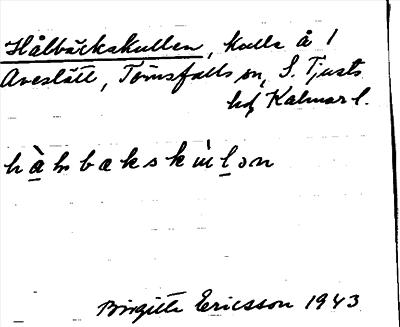 Hålbäckskullen, kulle å 1
Aveslätt, Törnsfalls sn, S. Tjusts
hd, Kalmar l.
Birgitta Ericsson 1943